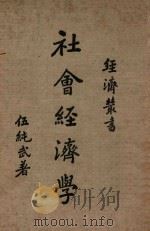 經濟叢書
社會經濟學
伍純武著
DOGE
mtoou.info